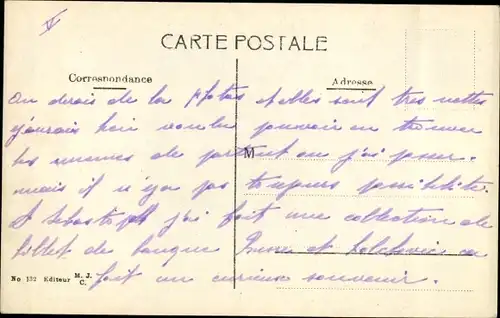 V
CARTE POSTALE
Correspondance
Adresse
On dirais de la photo et elles sont tres nettes
j'aurais bien voulu pouvoir en trouver
les memes de partout ou j'ai passer.
M
mais il n'y a pas toujours possibilité.
A Sebastopol j'ai fait une collection de
billet de banque Russe et bolchevic ca
fait un curieux souvenir.
No 132 Editeur M. J. C.